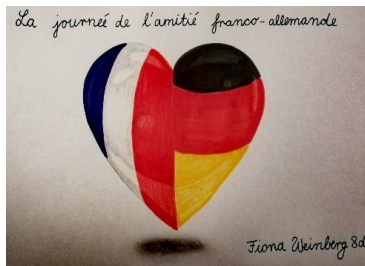 La journeé de l'amitié franco-allemande
Fiona Weinberg 8d